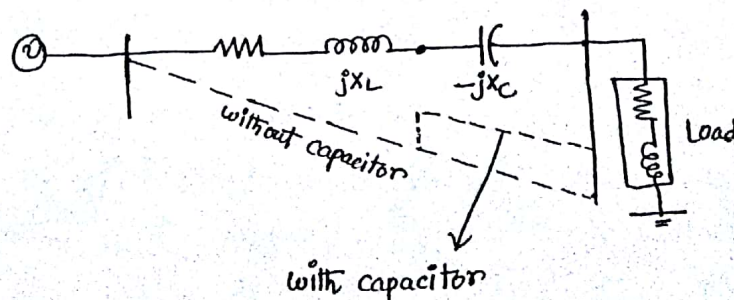 jXL
-jXC
Load
without capacitor
with capacitor